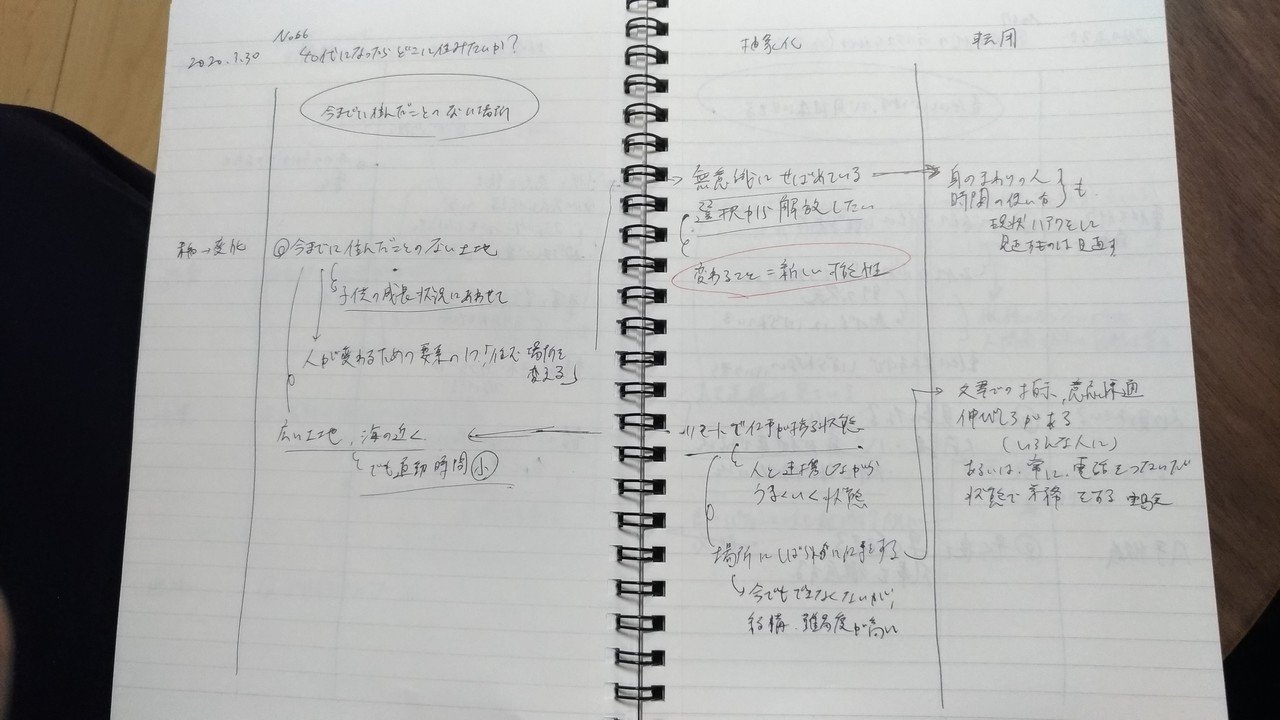 2020.1.30
No66
40代になったらどこに住みたいか?
今までに住んだことのない場所
→変化
今までに住んだことのない土地
子供の成長状況にあわせて
人が変わるための要素の1つ「住む場所を
変える」
広い土地、海の近く
でも通勤時間 小
抽象化
転用
→無意識にせばめている
選択から解放したい
変わること=新しい可能性
リモートで仕事が捗る状態
人と連携しながら
うまくいく状態
場所にしばられずに仕事をする
今でもできなくないが、
結構、難易度が高い
身のまわりの人
時間の使い方 } も
現状ハアクをして
見直すものは見直す
文章での指示、意思疎通
伸びしろがある
(いろんな人に)
あるいは、常に、電話をつないだ
状態で業務をする